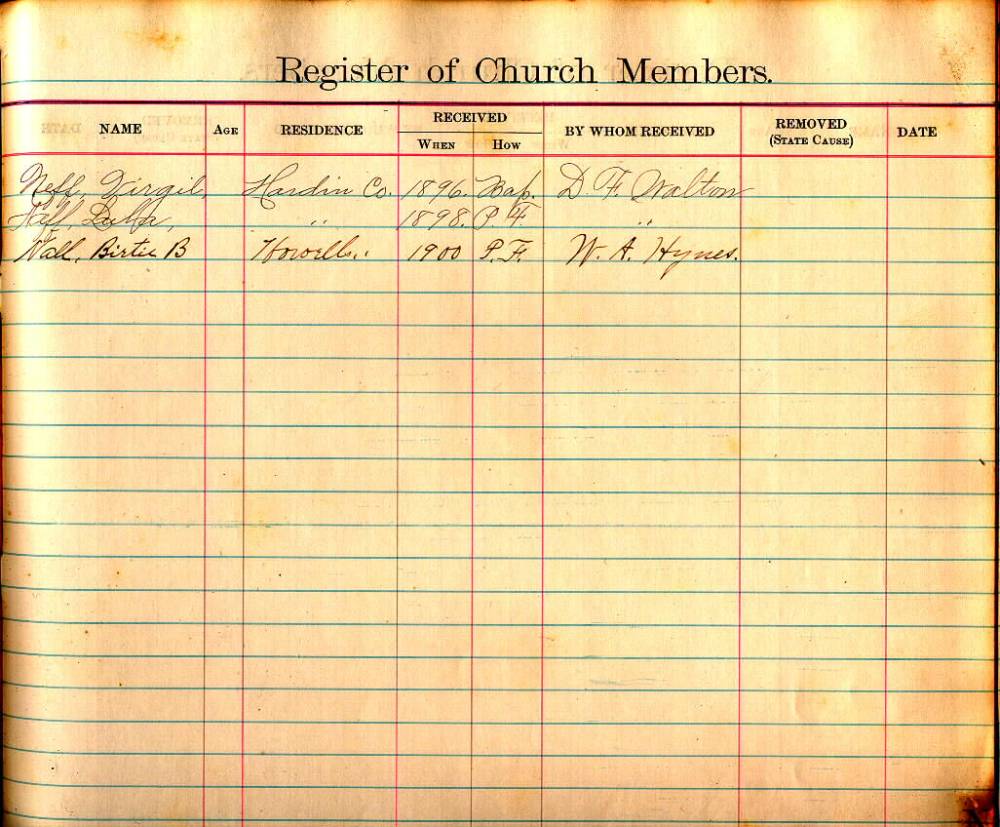 Register of Church Members.
NAME AGE RESIDENCE RECEIVED WHEN HOW BY WHOM RECEIVED REMOVED (STATE CAUSE) DATE
Neff, Virgil, Hardin Co. 1896. Bap. D. F. Walton
Neff, " 1898. P. F. "
Nall, Birtie B Howells.. 1900 P. F. W. A. Hynes.